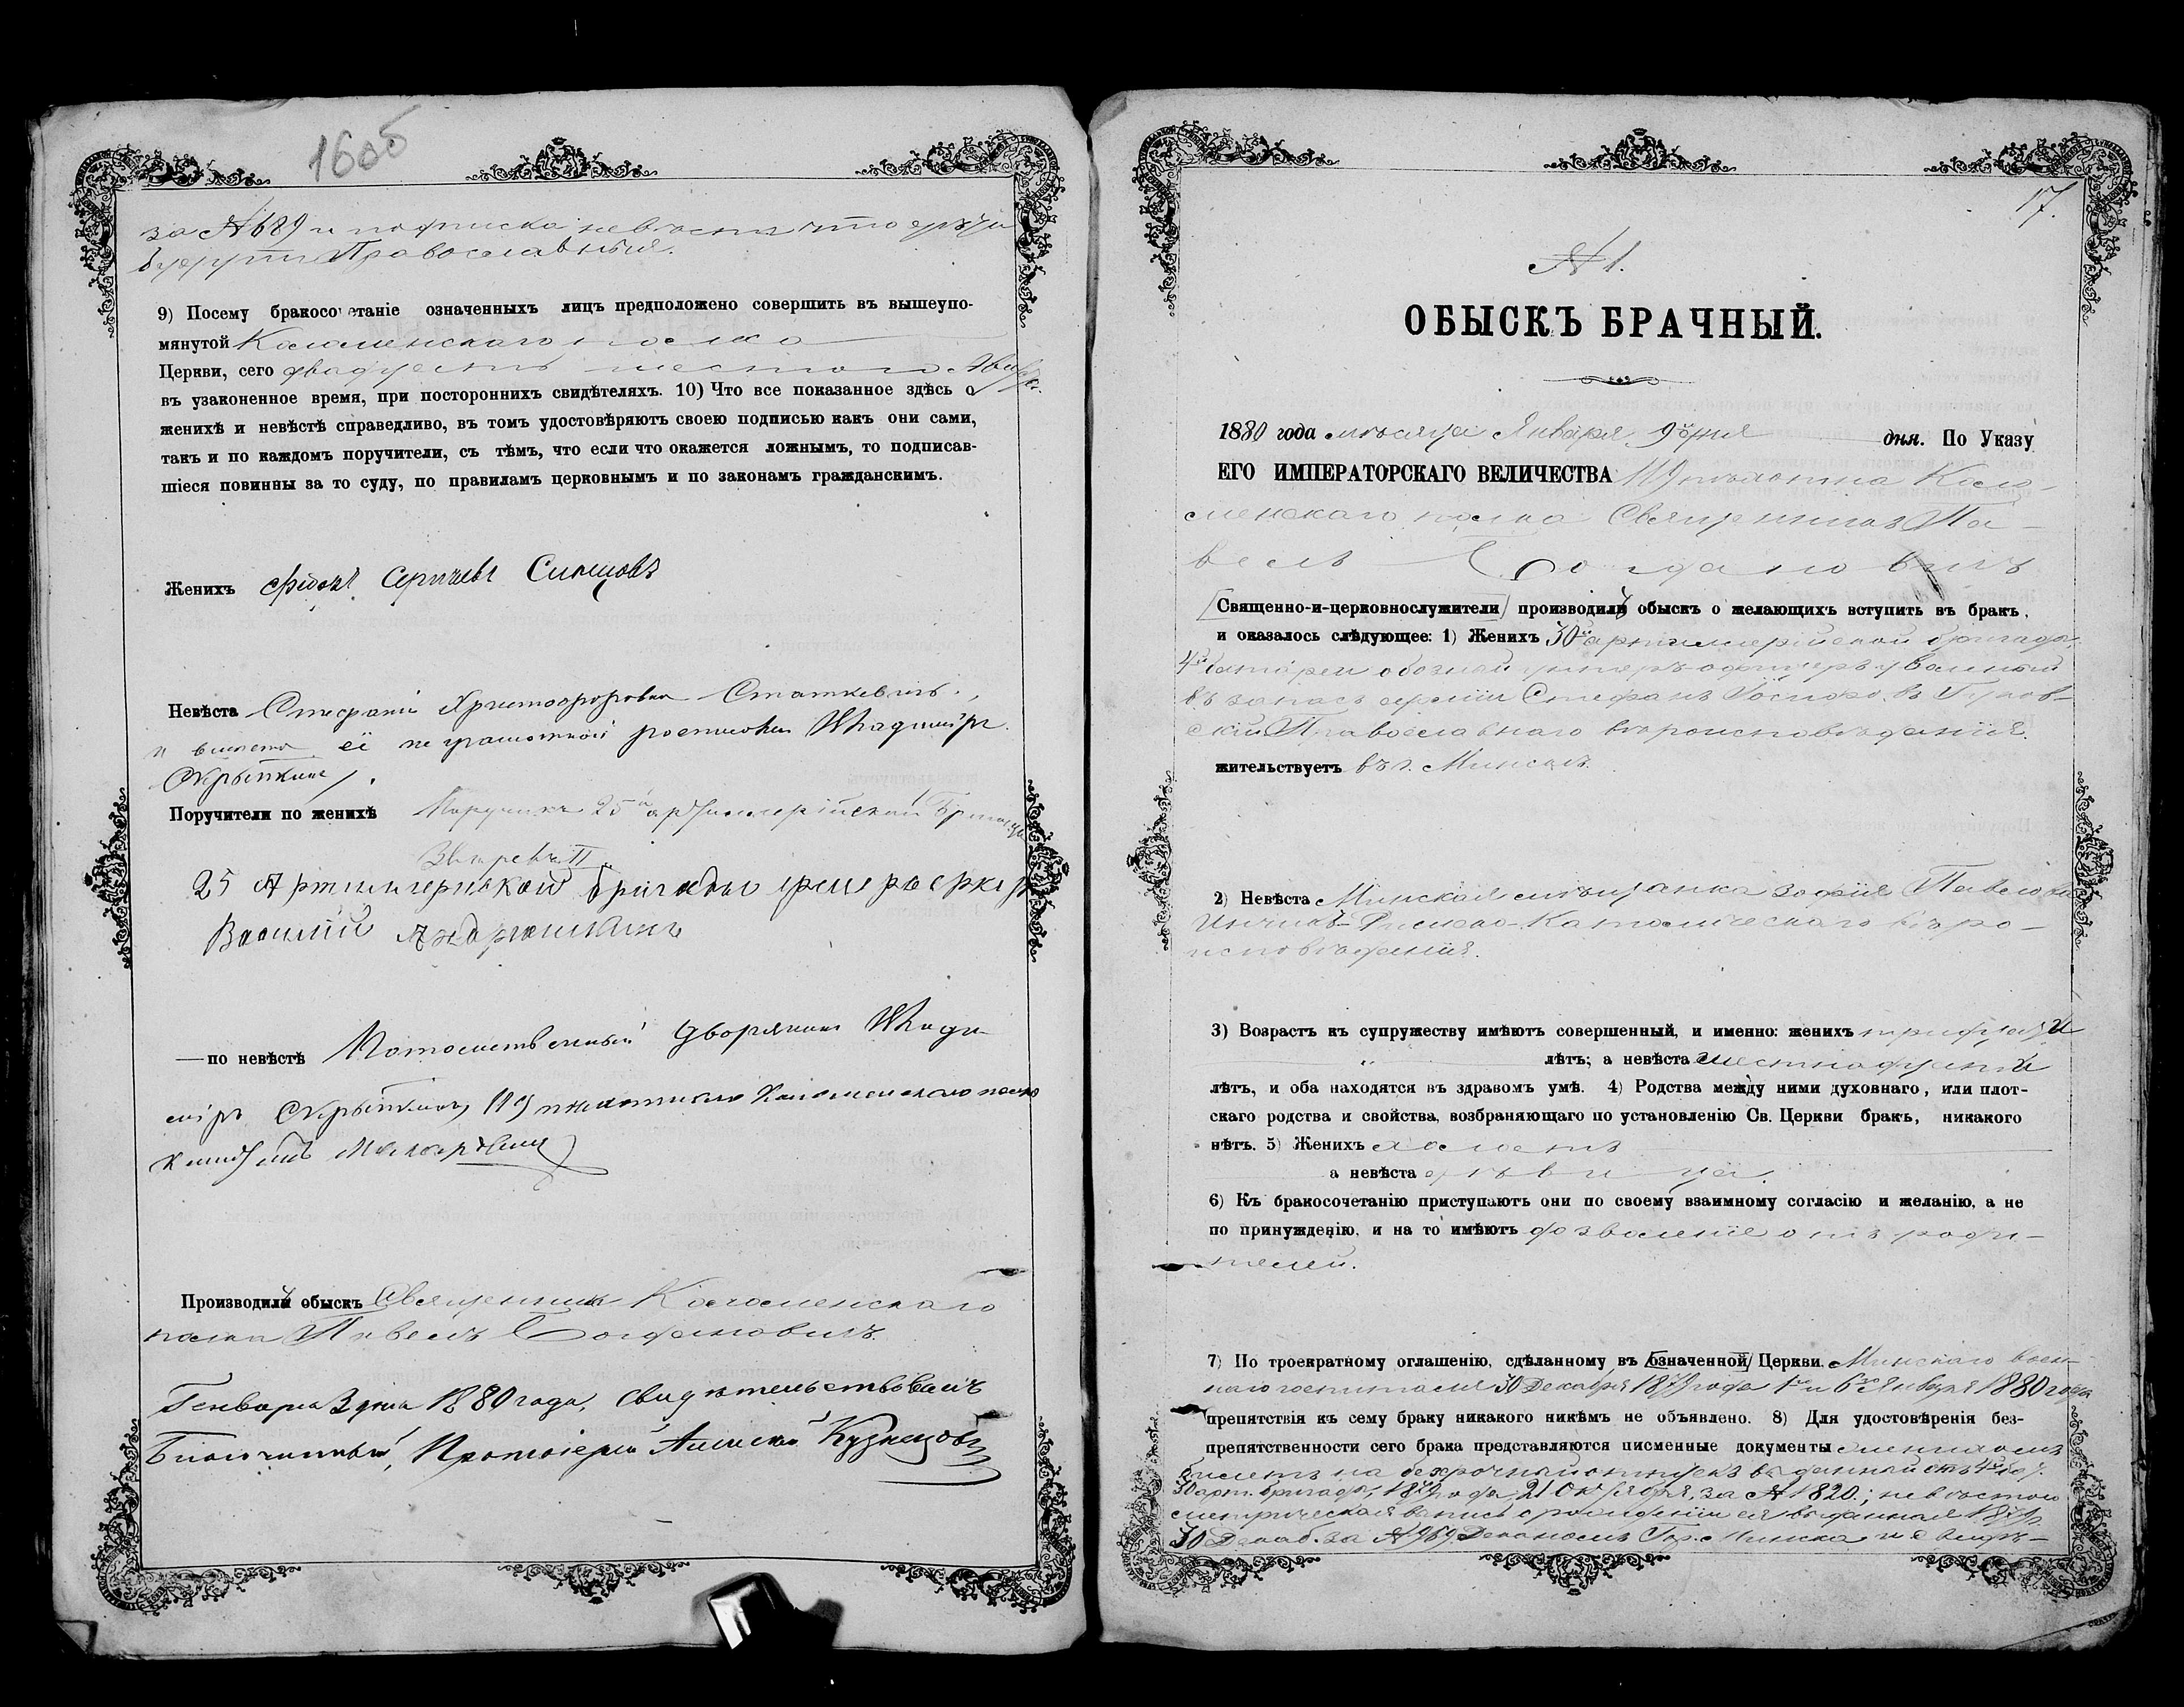 160б
за № 689 и подписка невесты что дети
будут Православныя.
9) Посему бракосочетаніе означенныхъ лицъ предположено совершить въ вышеупо-
мянутой Коломенскаго полка
Церкви, сего двадцать шестого
въ узаконенное время, при постороннихъ свидѣтеляхъ. 10) Что все показанное здѣсь о
женихѣ и невѣстѣ справедливо, въ томъ удостовѣряютъ своею подписью какъ они сами,
такъ и по каждомъ поручители, съ тѣмъ, что если что окажется ложнымъ, то подписав-
шіеся повинны за то суду, по правиламъ церковнымъ и по законамъ гражданскимъ.
Женихъ
Невѣста Стефанія Христофоровна Статкевичъ
и вместо её не грамотной росписался Владиміръ
Скрыпкинъ
Поручители по женихѣ Поручикъ 25й артиллерійской бригады
Звѣревъ II
25 Артиллерійской бригады феерверкеръ
Василій
—по невѣстѣ Потомственный дворянинъ Влади-
міръ Скрыпкинъ 119 пѣхотнаго Коломенскаго полка
Производилъ обыскъ Священникъ Коломенскаго
полка Павелъ Богдановичъ.
Генваря 3 дня 1880 года, свидѣтельствовалъ
Благочинный, Протоіерей Алексѣй Кузнецовъ
17.
№ 1.
ОБЫСКЪ БРАЧНЫЙ.
1880 года мѣсяца Января 9го дня дня. По Указу
ЕГО ИМПЕРАТОРСКАГО ВЕЛИЧЕСТВА 119 пѣхотна Коло-
менскаго полка Священникъ Па-
велъ Богдановичъ
Священно-и-церковнослужители производилъ обыскъ о желающихъ вступить въ бракъ,
и оказалось слѣдующее: 1) Женихъ 30й артиллерійской бригады
4й батареи обозный унтеръ-офицеръ уволенный
въ запасъ арміи Стефанъ
Православнаго вѣроисповѣданія.
жительствуетъ въ г. Минскѣ.
2) Невѣста Минская мѣщанка Зофія Павлова
Римско-Католическаго вѣро-
исповѣданія.
3) Возрастъ къ супружеству имѣютъ совершенный, и именно: женихъ тридцати
лѣтъ; а невѣста шестнадцати
лѣтъ, и оба находятся въ здравомъ умѣ. 4) Родства между ними духовнаго, или плот-
скаго родства и свойства, возбраняющаго по установленію Св. Церкви бракъ, никакого
нѣтъ. 5) Женихъ холостъ
а невѣста дѣвица.
6) Къ бракосочетанію приступаютъ они по своему взаимному согласію и желанію, а не
по принужденію, и на то имѣютъ дозволеніе отъ роди-
телей.
7) По троекратному оглашенію, сдѣланному въ означенной Церкви, Минскаго воен-
наго госпиталя 30 Декабря 1879 года 1го и 6го Января 1880 года
препятствія къ сему браку никакого никѣмъ не объявлено. 8) Для удостовѣренія без-
препятственности сего брака представляются писменные документы женихомъ
билетъ на безсрочный отпускъ выданный отъ 4й бат.
30 арт. бригады, 1879 года, 21 Октября, за № 1820.; невѣстою
метрическая запись о рожденіи ея выданная 1879 г.
30 Декаб. за № 959 Деканомъ Гор. Минска и